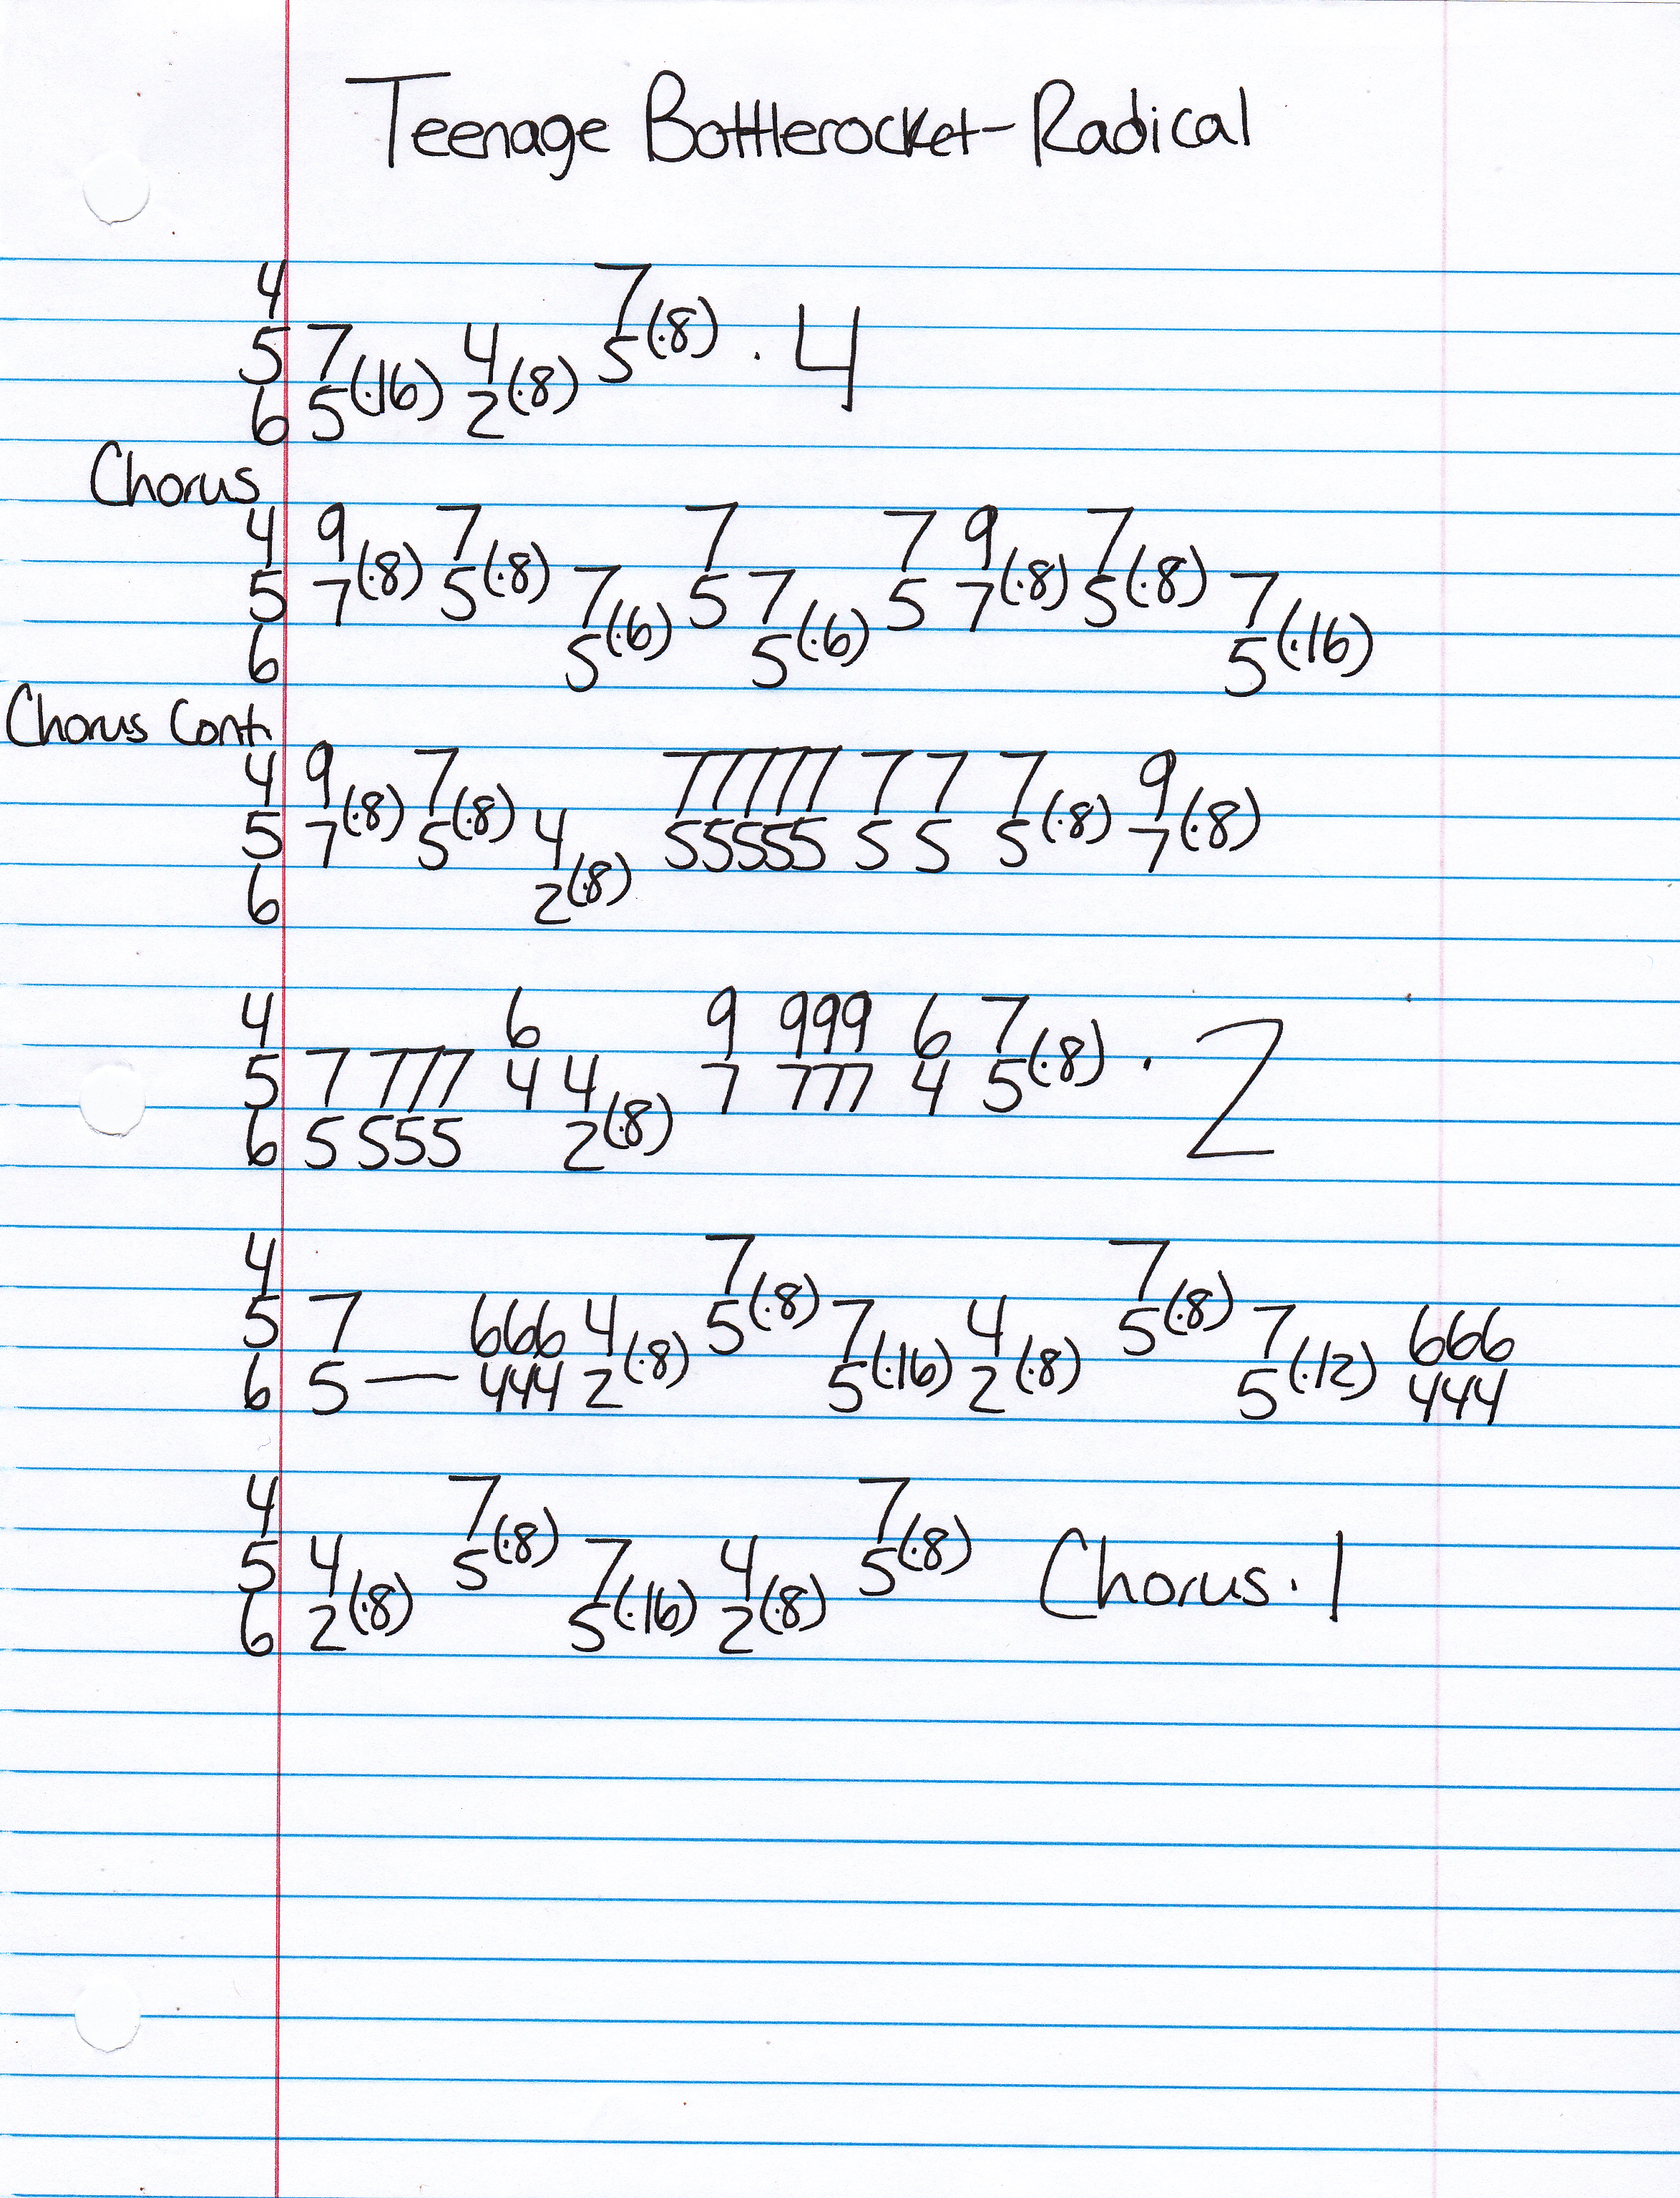 Teenage Bottlerocket - Radical
4 7(·8) · 4
5 7(·16) 4(·8) 5
6 5 2
Chorus
4 9(·8) 7(·8) 7 7 9(·8) 7(·8)
5 7 5 7(·6) 5 7(·6) 5 7 5 7(·16)
6 5 5 5
Chorus Cont.
4 9(·8) 7(·8) 77777 7 7 7(·8) 9(·8)
5 7 5 4 55555 5 5 5 7
6 2(·8)
4 6 9 999 6 7(·8) · 2
5 7 777 4 4 7 777 4 5
6 5 555 2(·8)
4 7(·8) 7(·8)
5 7 666 4(·8) 5 7(·16) 4(·8) 5 7(·12) 666
6 5 — 444 2 5 2 5 444
4 7(·8) 7(·8)
5 4(·8) 5 7(·16) 4(·8) 5 Chorus · 1
6 2 5 2